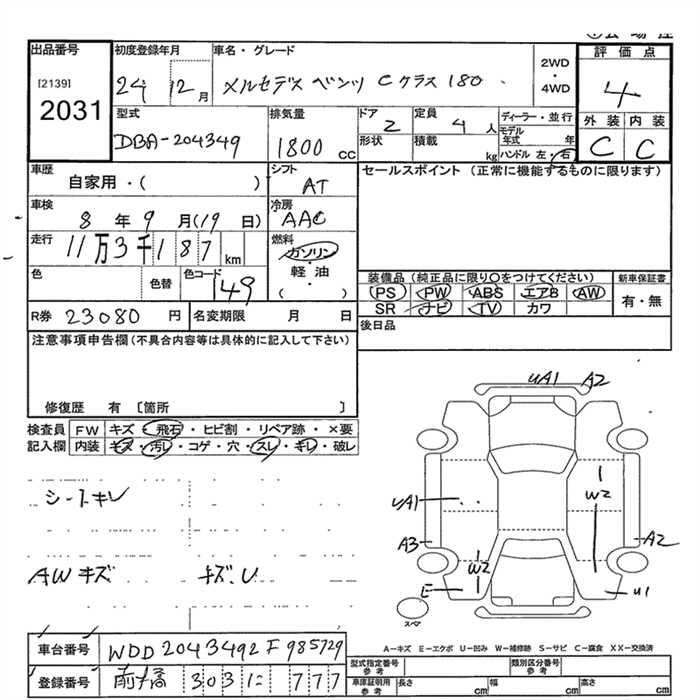 出品番号 初度登録年月 車名・グレード 評価点
[2139] 2031
24 12月 メルセデス ベンツ Cクラス 180 2WD・4WD 4
型式 排気量 ドア 定員 ディーラー・並行 外装 内装
DBA-204349 1800cc 2 4人 モデル年式 年 C C
形状 積載 kg ハンドル 左・右
車歴 シフト セールスポイント(正常に機能するものに限ります)
自家用・( ) AT
車検 冷房
8年9月(19日) AAC
走行 燃料
11万3千187km ガソリン・軽油
( )
色 色替 色コード 149
装備品(純正品に限り○をつけてください) 新車保証書
PS PW ABS エアB AW 有・無
SR ナビ TV カワ
R券 23080円 名変期限 月 日 後日品
注意事項申告欄(不具合内容等は具体的に記入して下さい)
修復歴 有 〔箇所 〕
検査員 FW キズ・飛石・ヒビ割・リペア跡・×要
記入欄 内装 キズ・汚レ・コゲ・穴・スレ・キレ・破レ
シートキレ
AWキズ キズ.U
uA1 A2
W2
uA1
A3 A2
W2
E u1
スペア
A-キズ E-エクボ U-凹み W-補修跡 S-サビ C-腐食 XX-交換済
車台番号 WDD2042492F985729
登録番号 前橋 303 に 777
型式指定番号 参考 類別区分番号 参考
車庫証明用 参考 長さ cm 幅 cm 高さ cm